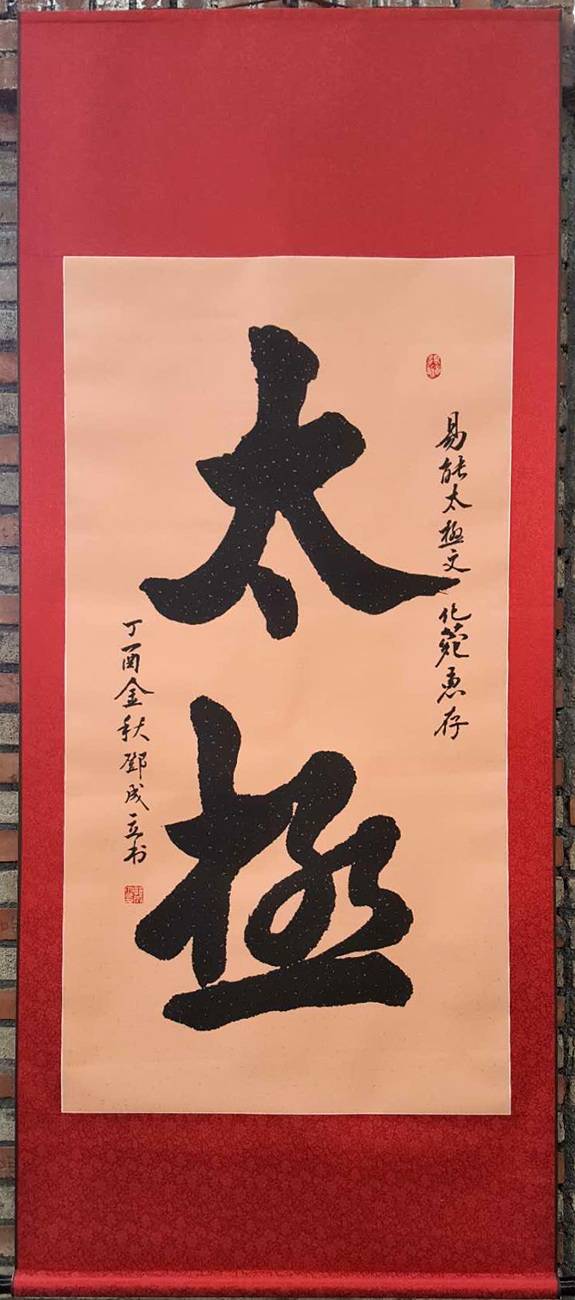 易能太极文化苑惠存
太极
丁酉金秋鄧成立书